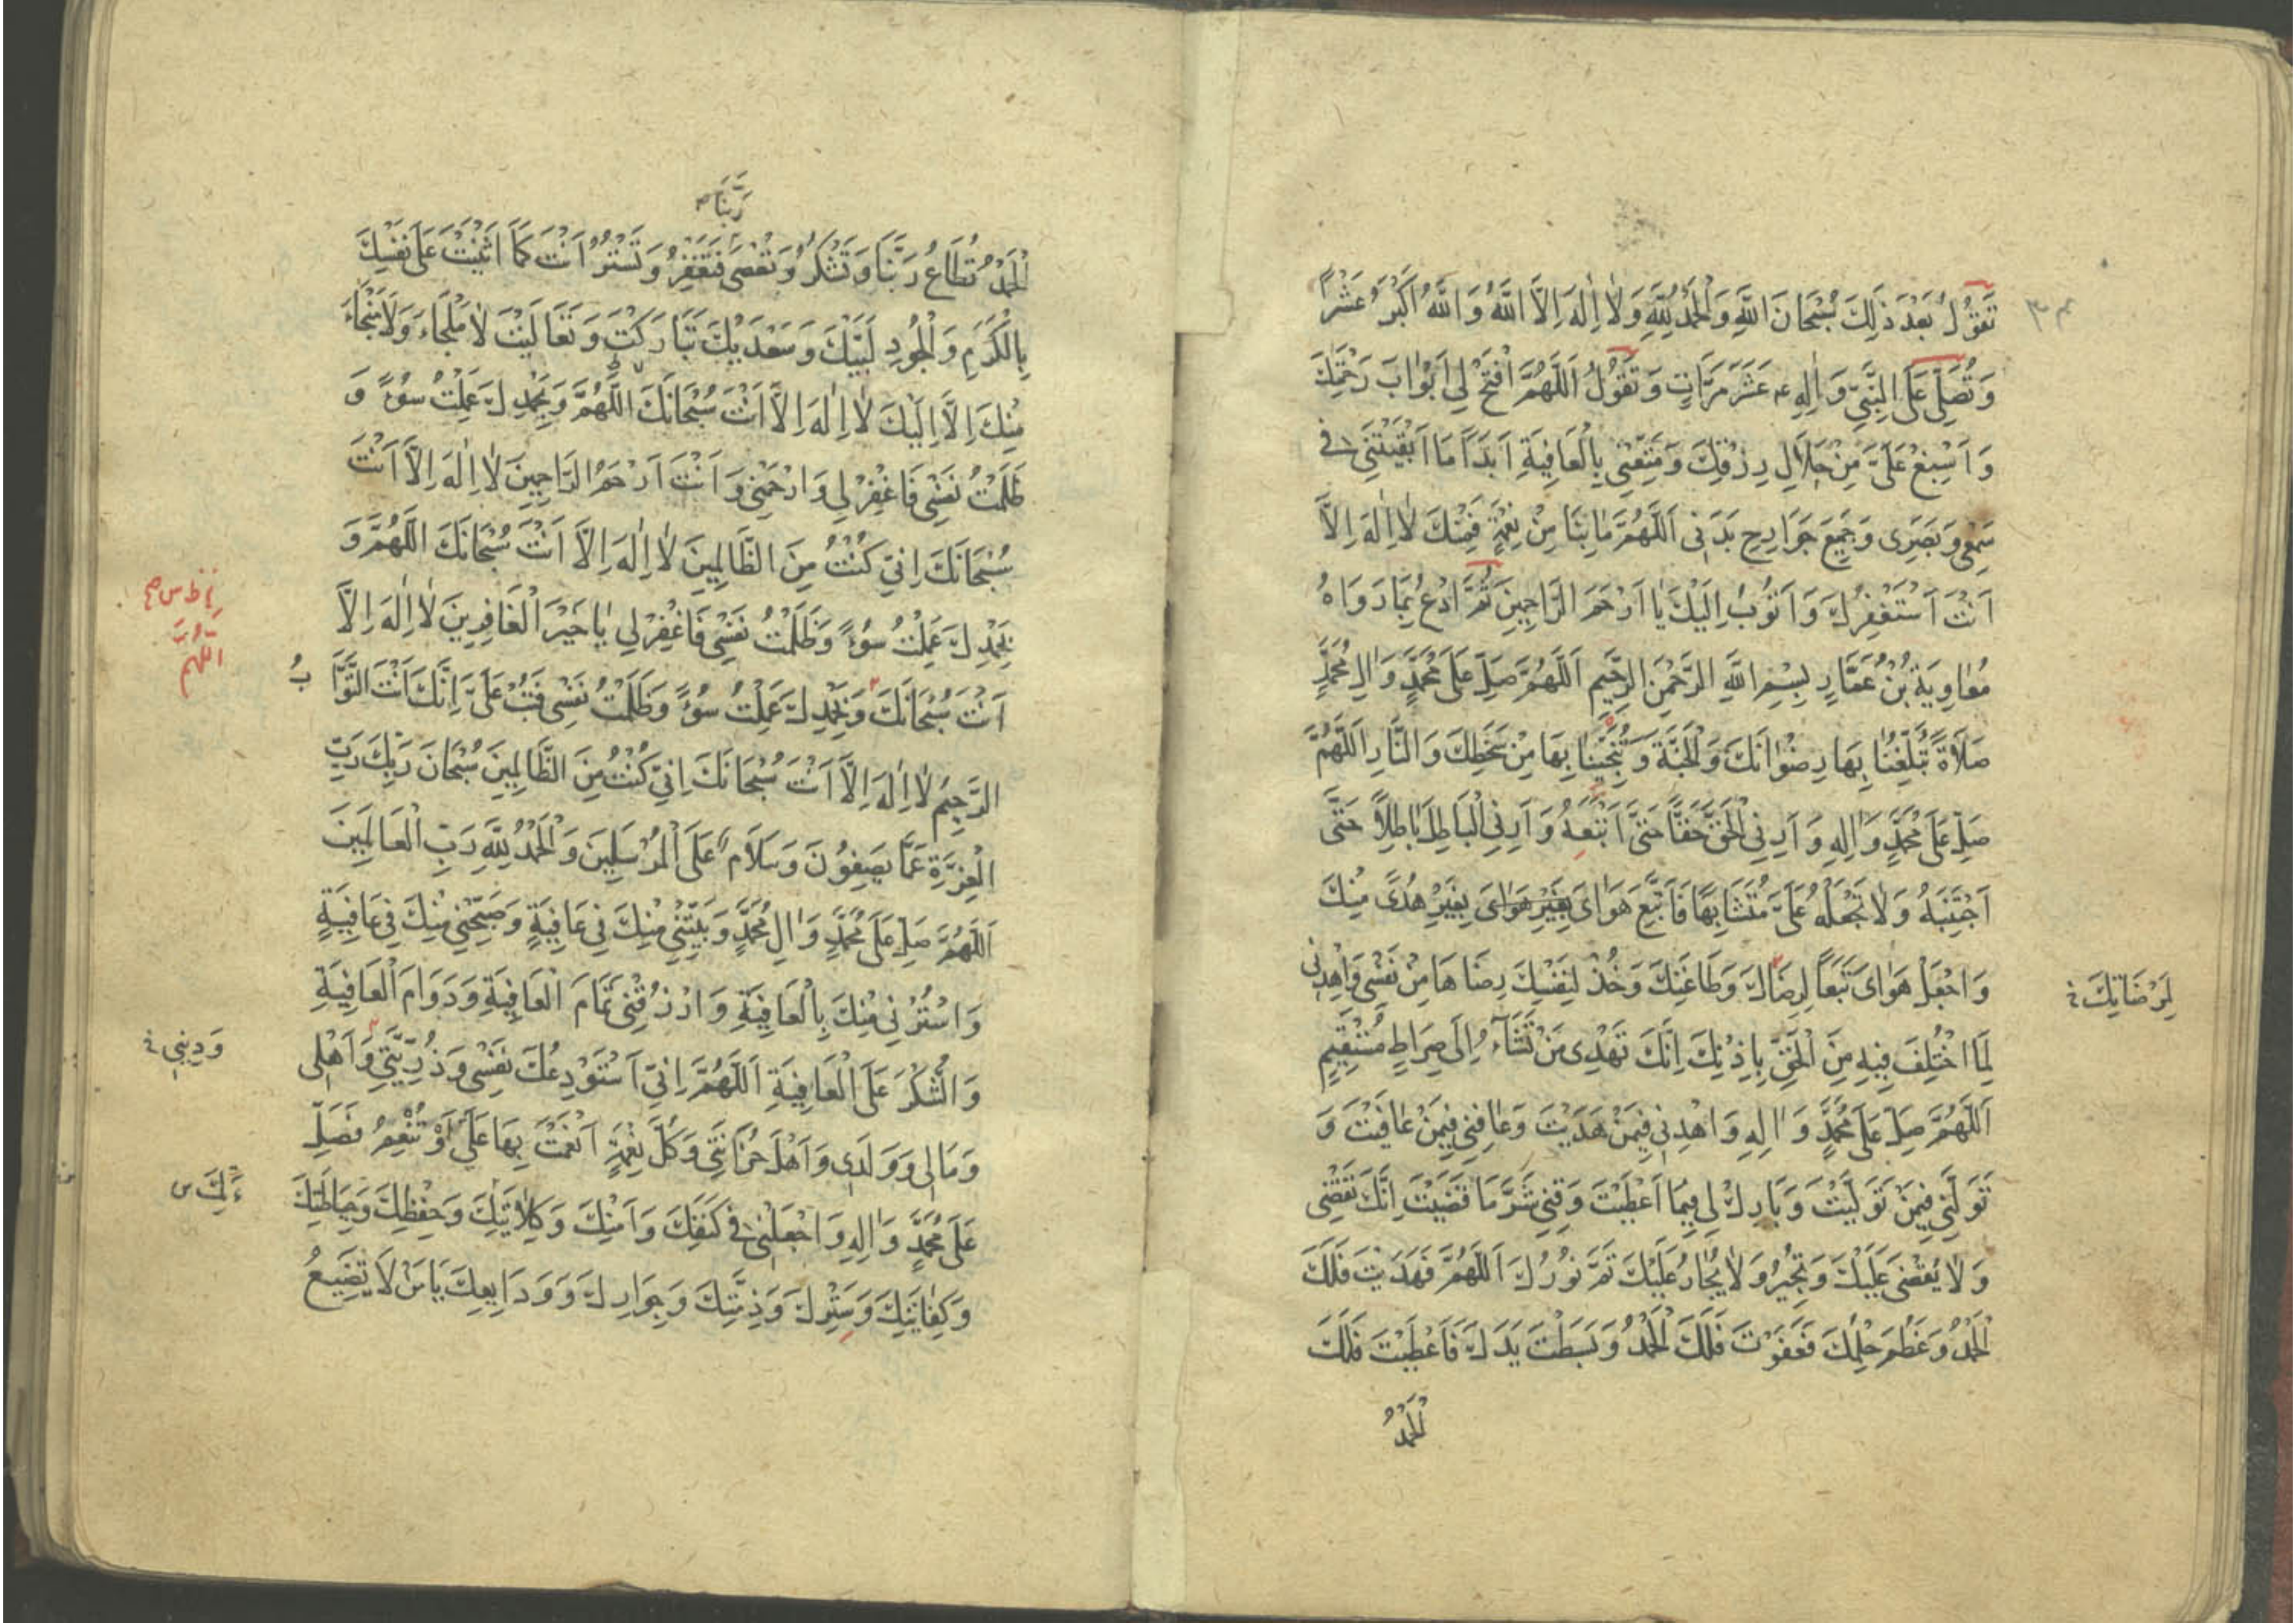 تَقُولُ بَعْدَ ذَلِكَ سُبْحَانَ اللَّهِ وَالْحَمْدُ لِلَّهِ وَلَا اِلٰهَ اِلَّا اللَّهُ وَاللَّهُ اَكْبَرُ عَشْراً
وَتُصَلِّى عَلَى النَّبِىِّ وَاٰلِهِ عَشَرَ مَرَّاتٍ وَتَقُولُ اَللَّهُمَّ افْتَحْ لِي اَبْوَابَ رَحْمَتِكَ
وَاَسْبِغْ عَلَىَّ مِنْ حَلَالِ رِزْقِكَ وَمَتِّعْنِي بِالْعَافِيَةِ اَبَدًا مَا اَبْقَيْتَنِي فِي
سَمْعِي وَبَصَرِى وَجَمِيعِ جَوَارِحِ بَدَنِى اَللَّهُمَّ مَا بِنَا مِنْ نِعْمَةٍ فَمِنْكَ لَا اِلٰهَ اِلَّا
اَنْتَ اَسْتَغْفِرُكَ وَاَتُوبُ اِلَيْكَ يَا اَرْحَمَ الرَّاحِمِينَ ثُمَّ ادْعُ بِمَا رَوَاهُ
مُعَاوِيَةُ بْنُ عَمَّارٍ بِسْمِ اللَّهِ الرَّحْمٰنِ الرَّحِيمِ اَللَّهُمَّ صَلِّ عَلَى مُحَمَّدٍ وَاٰلِ مُحَمَّدٍ
صَلَاةً تُبَلِّغُنَا بِهَا رِضْوَانَكَ وَالْجَنَّةَ وَتُنَجِّينَا بِهَا مِنْ سَخَطِكَ وَالنَّارِ اَللَّهُمَّ
صَلِّ عَلَى مُحَمَّدٍ وَاٰلِهِ وَاَرِنِي الْحَقَّ حَقًّا حَتَّى اَتَّبِعَهُ وَاَرِنِي الْبَاطِلَ بَاطِلًا حَتَّى
اَجْتَنِبَهُ وَلَا تَجْعَلْهُ عَلَىَّ مُتَشَابِهًا فَاَتَّبِعَ هَوَاىَ بِغَيْرِ هَوَاىَ بِغَيْرِ هُدًى مِنْكَ
وَاجْعَلْ هَوَاىَ تَبَعًا لِرِضَاكَ وَطَاعَتِكَ وَخُذْ لِنَفْسِكَ رِضَاهَا مِنْ نَفْسِى وَاهْدِنِى
لِمَرْضَاتِكَ
لِمَا اخْتُلِفَ فِيهِ مِنَ الْحَقِّ بِاِذْنِكَ اِنَّكَ تَهْدِى مَنْ تَشَاءُ اِلَى صِرَاطٍ مُسْتَقِيمٍ
اَللَّهُمَّ صَلِّ عَلَى مُحَمَّدٍ وَاٰلِهِ وَاهْدِنِي فِيمَنْ هَدَيْتَ وَعَافِنِي فِيمَنْ عَافَيْتَ وَ
تَوَلَّنِي فِيمَنْ تَوَلَّيْتَ وَبَارِكْ لِي فِيمَا اَعْطَيْتَ وَقِنِي شَرَّ مَا قَضَيْتَ اِنَّكَ تَقْضِى
وَلَا يُقْضَى عَلَيْكَ وَتُجِيرُ وَلَا يُجَارُ عَلَيْكَ تَمَّ نُورُكَ اَللَّهُمَّ فَهَدَيْتَ فَلَكَ
الْحَمْدُ وَعَظُمَ حِلْمُكَ فَعَفَوْتَ فَلَكَ الْحَمْدُ وَبَسَطْتَ يَدَكَ فَاَعْطَيْتَ فَلَكَ
الْحَمْدُ
رَبَّنَا
الْحَمْدُ تُطَاعُ رَبَّنَا وَتَشْكُرُ وَتُعْصَى فَتَغْفِرُ وَتَسْتُرُ اَنْتَ كَمَا اَثْنَيْتَ عَلَى نَفْسِكَ
بِالْكَرَمِ وَالْجُودِ لَبَّيْكَ وَسَعْدَيْكَ تَبَارَكْتَ وَتَعَالَيْتَ لَا مَلْجَاءَ وَلَا مَنْجَاءَ
مِنْكَ اِلَّا اِلَيْكَ لَا اِلٰهَ اِلَّا اَنْتَ سُبْحَانَكَ اللَّهُمَّ وَبِحَمْدِكَ عَمِلْتُ سُوءً وَ
ظَلَمْتُ نَفْسِى فَاغْفِرْ لِى وَارْحَمْنِى وَاَنْتَ اَرْحَمُ الرَّاحِمِينَ لَا اِلٰهَ اِلَّا اَنْتَ
سُبْحَانَكَ اِنِّي كُنْتُ مِنَ الظَّالِمِينَ لَا اِلٰهَ اِلَّا اَنْتَ سُبْحَانَكَ اللَّهُمَّ وَ
بِحَمْدِكَ عَمِلْتُ سُوءً وَظَلَمْتُ نَفْسِى فَاغْفِرْ لِي يَا خَيْرَ الْغَافِرِينَ لَا اِلٰهَ اِلَّا
اللَّهُمَّ
اَنْتَ سُبْحَانَكَ وَبِحَمْدِكَ عَمِلْتُ سُوءً وَظَلَمْتُ نَفْسِى فَتُبْ عَلَىَّ اِنَّكَ اَنْتَ التَّوَّابُ
الرَّحِيمُ لَا اِلٰهَ اِلَّا اَنْتَ سُبْحَانَكَ اِنِّي كُنْتُ مِنَ الظَّالِمِينَ سُبْحَانَ رَبِّكَ رَبِّ
الْعِزَّةِ عَمَّا يَصِفُونَ وَسَلَامٌ عَلَى الْمُرْسَلِينَ وَالْحَمْدُ لِلَّهِ رَبِّ الْعَالَمِينَ
اَللَّهُمَّ صَلِّ عَلَى مُحَمَّدٍ وَاٰلِ مُحَمَّدٍ وَبَيِّتْنِي مِنْكَ فِي عَافِيَةٍ وَصَبِّحْنِي مِنْكَ فِي عَافِيَةٍ
وَاسْتُرْنِي مِنْكَ بِالْعَافِيَةِ وَارْزُقْنِى تَمَامَ الْعَافِيَةِ وَدَوَامَ الْعَافِيَةِ
وَالشُّكْرَ عَلَى الْعَافِيَةِ اَللَّهُمَّ اِنِّي اَسْتَوْدِعُكَ نَفْسِى وَذُرِّيَّتِي وَاَهْلِى
وَدِينِي
وَمَالِى وَوَلَدِى وَاَهْلَ حُزَانَتِي وَكُلَّ نِعْمَةٍ اَنْعَمْتَ بِهَا عَلَىَّ اَوْ تُنْعِمُ فَصَلِّ
عَلَى مُحَمَّدٍ وَاٰلِهِ وَاجْعَلْنِى فِي كَنَفِكَ وَاَمْنِكَ وَكِلَايَتِكَ وَحِفْظِكَ وَحِيَاطَتِكَ
وَكِفَايَتِكَ وَسِتْرِكَ وَذِمَّتِكَ وَجِوَارِكَ وَوَدَايِعِكَ يَا مَنْ لَا تَضِيعُ